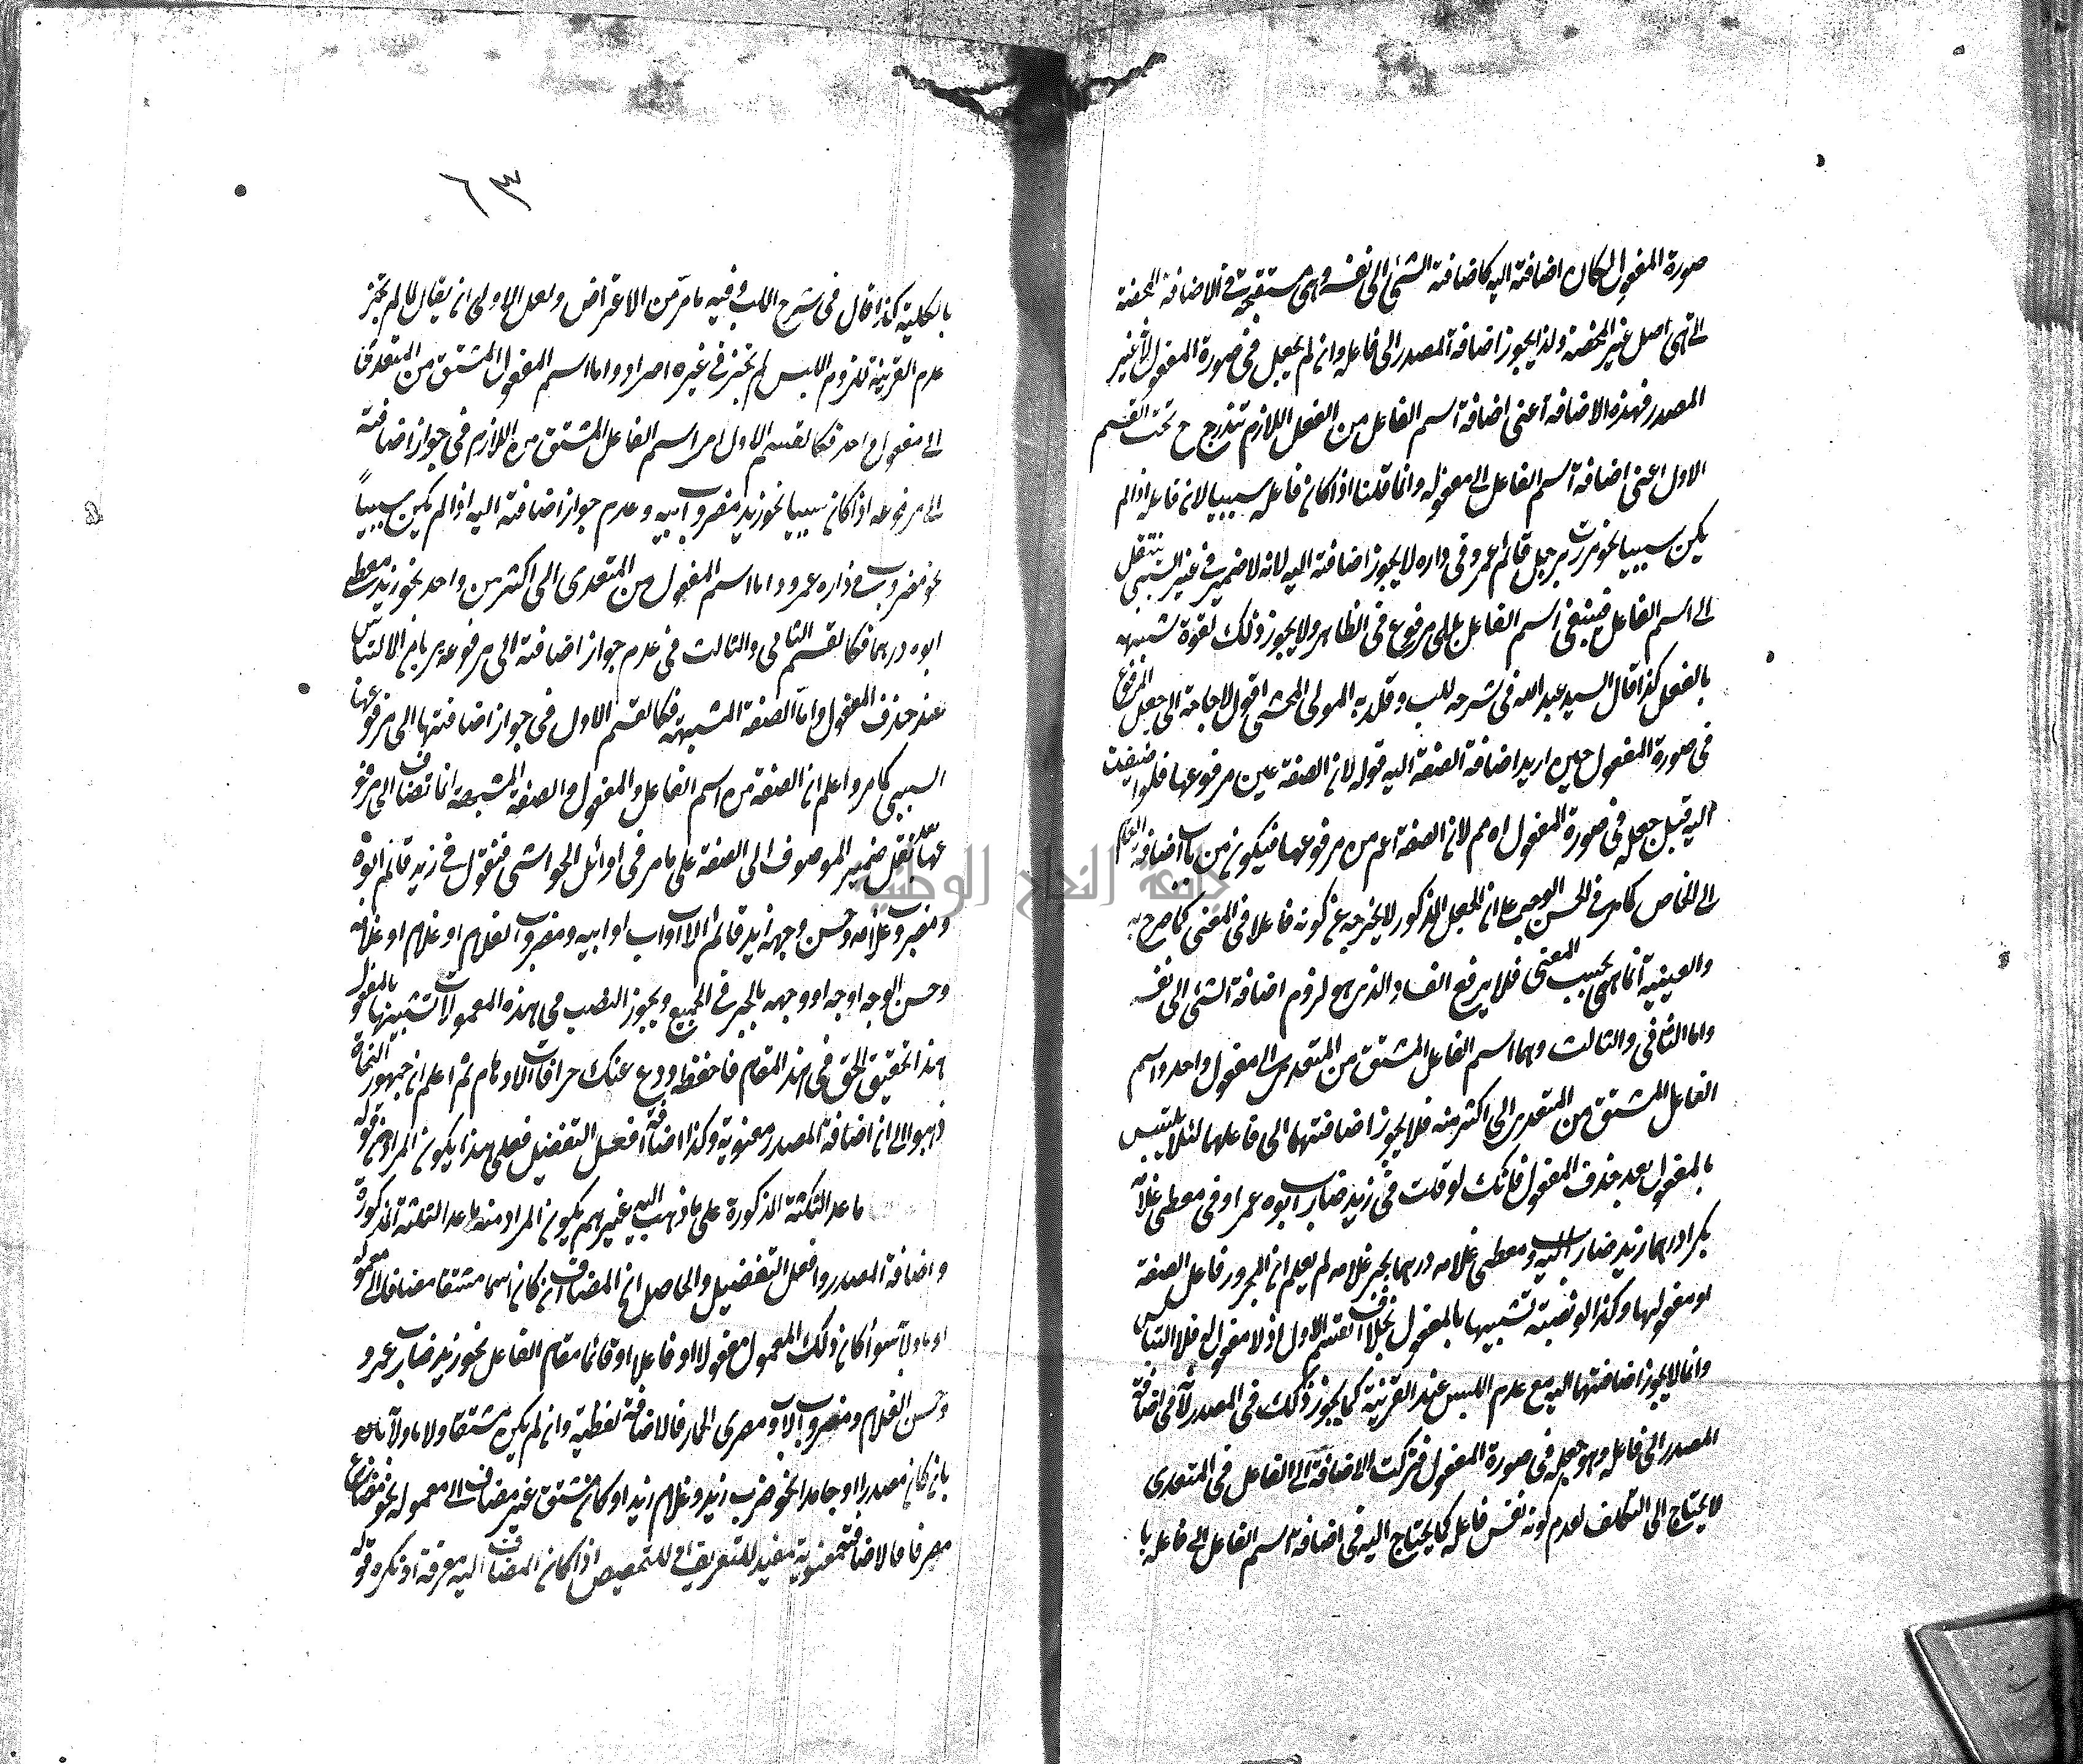 صورة المفعول لكان اضافته اليه كاضافة الشئ الى نفسه وهى مستقبحة فى الاضافة المحضة
التى هى اصل غير المحضة ولذا يجوز اضافة المصدر الى فاعله وان لم يجعل فى صورة المفعول لانه غير
المصدر فهذه الاضافة اعنى اضافة اسم الفاعل من الفعل اللازم تندرج ح تحت القسم
الاول اعنى اضافة اسم الفاعل الى مفعوله وانما قلنا اذا كان فاعله سببيا لان فاعله اذا لم
يكن سببيا نحو مررت برجل قائم عمرو فى داره لا يجوز اضافته اليه لانه لا ضمير فى غير السببى ينتقل
الى اسم الفاعل فيبقى اسم الفاعل بلا مرفوع فى الظاهر ولا يجوز ذلك لقوة تشبيهه
بالفعل كذا قال السيد عبد الله فى شرحه للب وقلد به المولى المحشى اقول لا حاجة الى جعل المرفوع
فى صورة المفعول حين اريد اضافة الصفة اليه قوله لان الصفة عين مرفوعها فلو اضيفت
اليه قبل جعله فى صورة المفعول اه مم لان الصفة اعم من مرفوعها فيكون من باب اضافة العام
الى الخاص كما مر فى الحسن الوجه على ان الجعل المذكور لا يخرجه عن كونه فاعلا فى المعنى كما صرح به
والعينية انما هى بحسب المعنى فلا يرفع الفساد الذى هو لزوم اضافة الشئ الى نفسه
واما الثانى والثالث وهما اسم الفاعل المشتق من المتعدى الى مفعول واحد واسم
الفاعل المشتق من المتعدى الى اكثر منه فلا يجوز اضافتهما الى فاعلهما لئلا يلتبس
بالمفعول بعد حذف المفعول فانك لو قلت فى زيد ضارب ابوه عمرا وفى معطى غلامه
بكرا درهما زيد ضارب ابيه ومعطى غلامه درهما بجر غلامه لم يعلم ان المجرور فاعل الصفة
او مفعولها وكذا لو نصبته تشبيها بالمفعول بخلاف القسم الاول اذ لا مفعول له فلا التباس
وانما لا يجوز اضافتهما اليه مع عدم اللبس عند القرينة كما يجوز ذلك فى المصدر لان فى اضافة
المصدر الى فاعله وهو جعله فى صورة المفعول فتركت الاضافة الى الفاعل فى المتعدى
لا يحتاج الى التكلف لعدم كونه نفس فاعله كما يحتاج اليه فى اضافة اسم الفاعل الى فاعله با
٦٣
بالكلية كذا قال فى شرح اللب وفيه ما مر من الاعتراض ولعل الاولى ان يقال لما لم يجز
عدم القرينة للزوم اللبس لم يجز فى غيره اصرا د واما اسم المفعول المشتق من المتعدى
الى مفعول واحد فكالقسم الاول اعنى اسم الفاعل المشتق من اللازم فى جواز اضافته
الى مرفوعه اذا كان سببيا نحو زيد مضروب ابيه وعدم جواز اضافته اليه اذا لم يكن سببيا
نحو مضروب فى داره عمرو واما اسم المفعول من المتعدى الى اكثر من واحد نحو زيد معطى
ابوه درهما فكالقسم الثانى والثالث فى عدم جواز اضافته الى مرفوعه لالتباس
عند حذف المفعول واما الصفة المشبهة فكالقسم الاول فى جواز اضافتها الى مرفوعها
السببى كما مر واعلم ان الصفة من اسم الفاعل والمفعول والصفة المشبهة انما تضاف الى مرفو
عها بنقل ضمير الموصوف الى الصفة على ما مر فى اوائل الحواشى فتقول فى زيد قائم ابوه
ومضروب غلامه وحسن وجهه زيد قائم الاب او اب او ابيه ومضروب الغلام او غلام او غلامه
وحسن الوجه او وجه او وجهه بالجر فى الجميع ويجوز النصب فى هذه المعمولات تشبيها بالمفعول
هذا تحقيق الحق فى هذا المقام فاحفظه ودع عنك خرافات الاوهام ثم اعلم ان جمهور النحاة
ذهبوا الى ان اضافة المصدر معنوية وكذا اضافة افعل التفضيل فعلى هذا يكون المراد من قوله
ما عدا الثلثة المذكورة على ما ذهب اليه غيرهم يكون المراد منه ما عدا الثلثة المذكورة
واضافة المصدر وافعل التفضيل والحاصل ان المضاف ان كان اسما مشتقا مضافا الى معموله
او ماولا به سواء كان ذلك المعمول مفعولا او فاعلا او قائما مقام الفاعل نحو زيد ضارب عمرو
وحسن الغلام ومضروب الاب ومصرى الحمار فالاضافة لفظية وان لم يكن مشتقا ولا ماولا به
بان كان مصدرا او جامدا نحو ضرب زيد وغلام زيد او كان مشتق غير مضاف الى معموله نحو مضارع
مصر فالاضافة معنوية مفيد للتعريف او للتخصيص اذا كان المضاف اليه معرفة او نكرة قوله